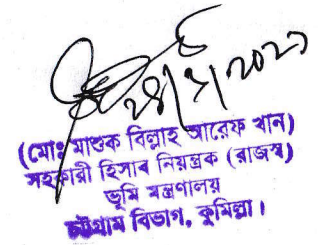 ২৪/৮/২০২১
(মোঃ মাশুক বিল্লাহ আরেফ খান)
সহকারী হিসাব নিয়ন্ত্রক (রাজস্ব)
ভূমি মন্ত্রণালয়
চট্টগ্রাম বিভাগ, কুমিল্লা।